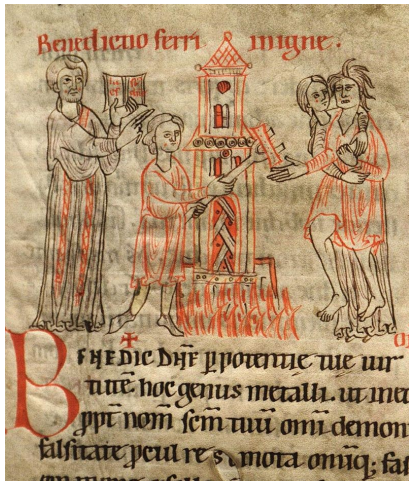 Benedictio ferri inigne.
BENEDIC DNE p potentie tue uir
tutē hoc genus metalli. ut
ppt nom̄ scm̄ tuū omī
falsitate pcul re mota omiq;